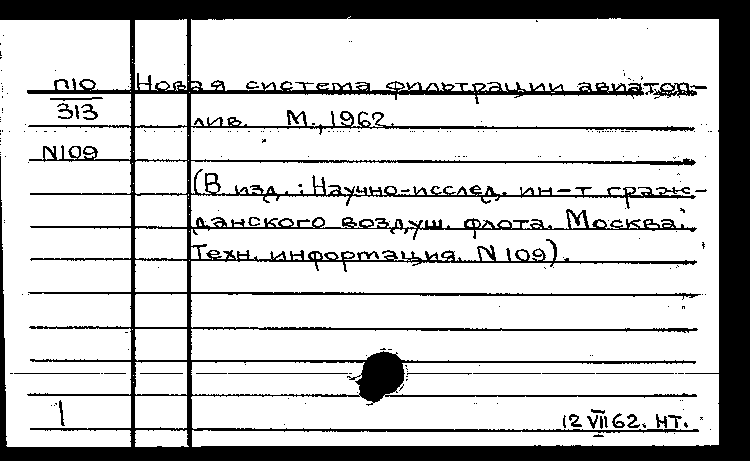 П10 Новая система фильтрации авиатоп-
313 лив. М., 1962.
N109
(В изд.: Научно-исслед. ин-т граж-
данского воздуш. флота. Москва.
Техн. информация. N109).
1 12 VII 62. НТ.